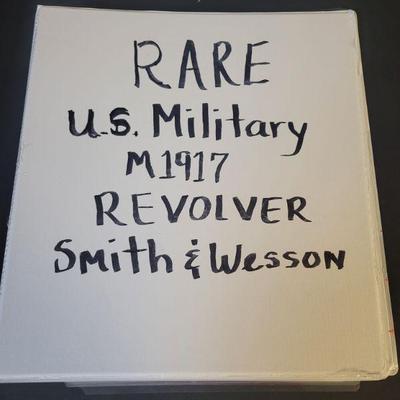 RARE
U.S. Military
M1917
REVOLVER
Smith & Wesson